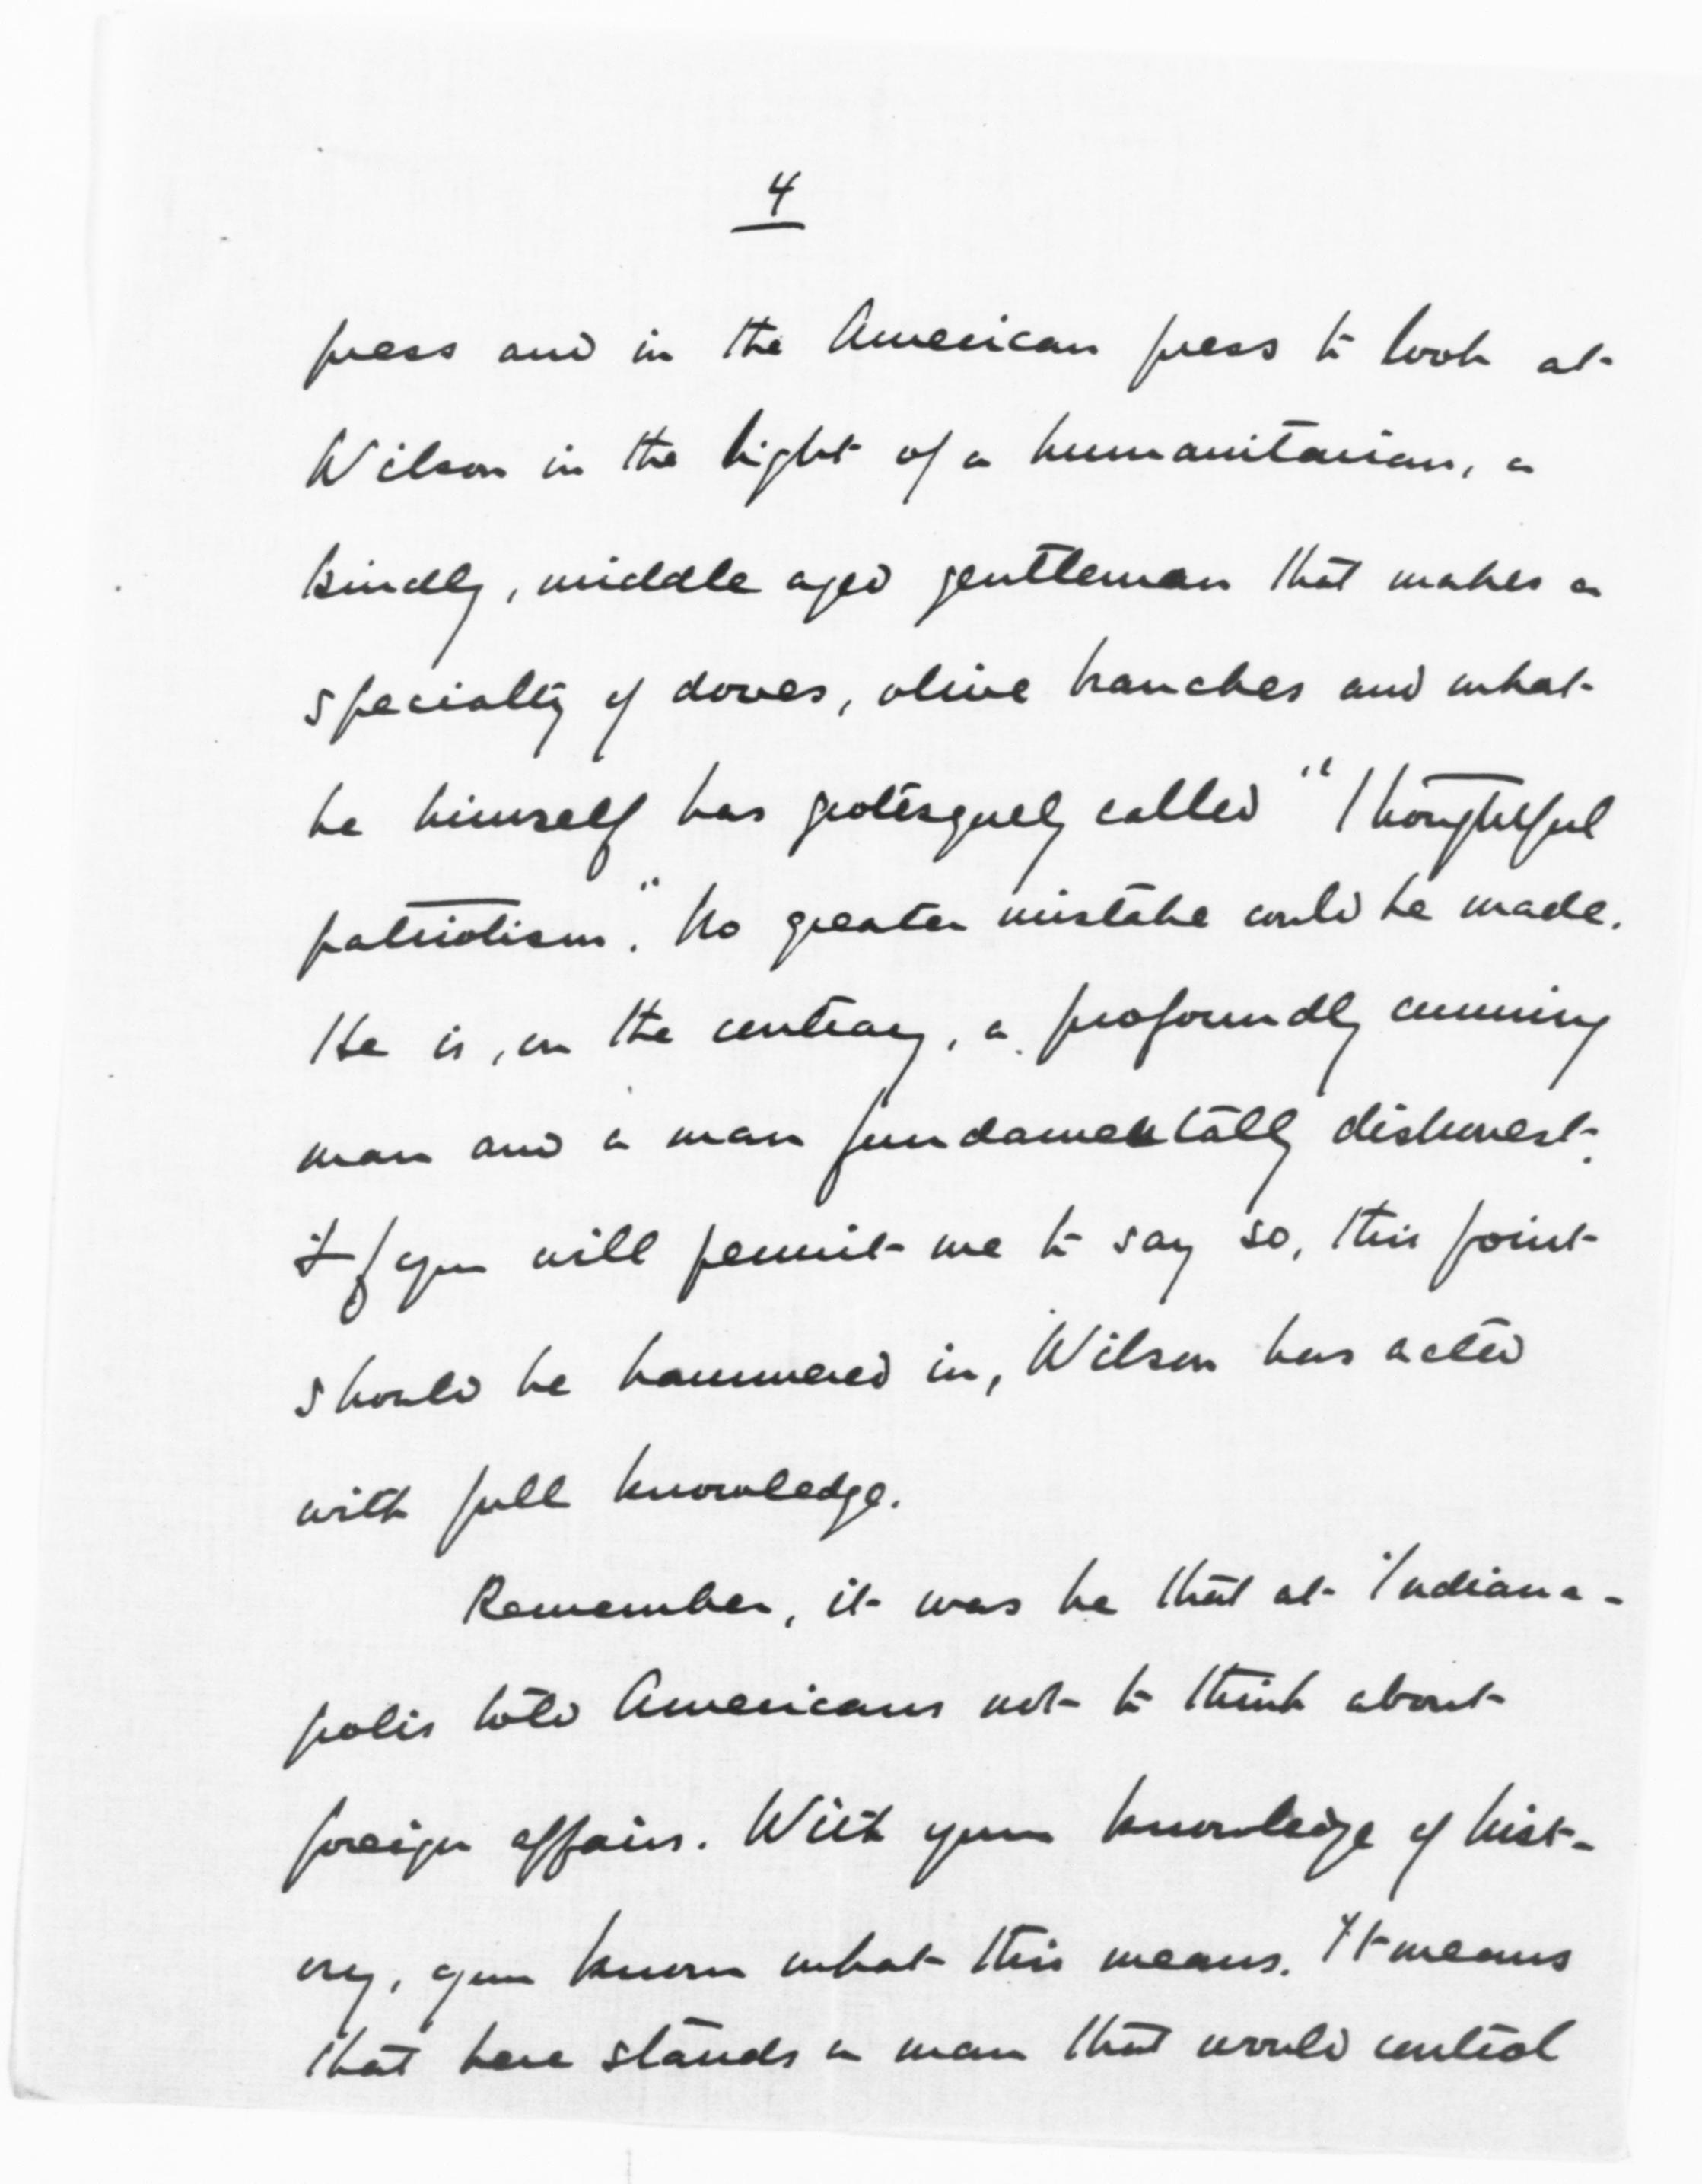 4
press and in the American press to look at
Wilson in the light of a humanitarian, a
kindly, middle aged gentleman that makes a
specialty of doves, olive branches and what
he himself has grotesquely called "Thoughtful
patriotism". No greater mistake could be made.
He is, on the contrary, a profoundly cunning
man and a man fundamentally dishonest.
If you will permit me to say so, this point
should be hammered in, Wilson has acted
with full knowledge.
Remember, it was he that at Indiana-
polis told Americans not to think about
foreign affairs. With your knowledge of hist-
ory, you know what this means. It means
that here stands a man that would control